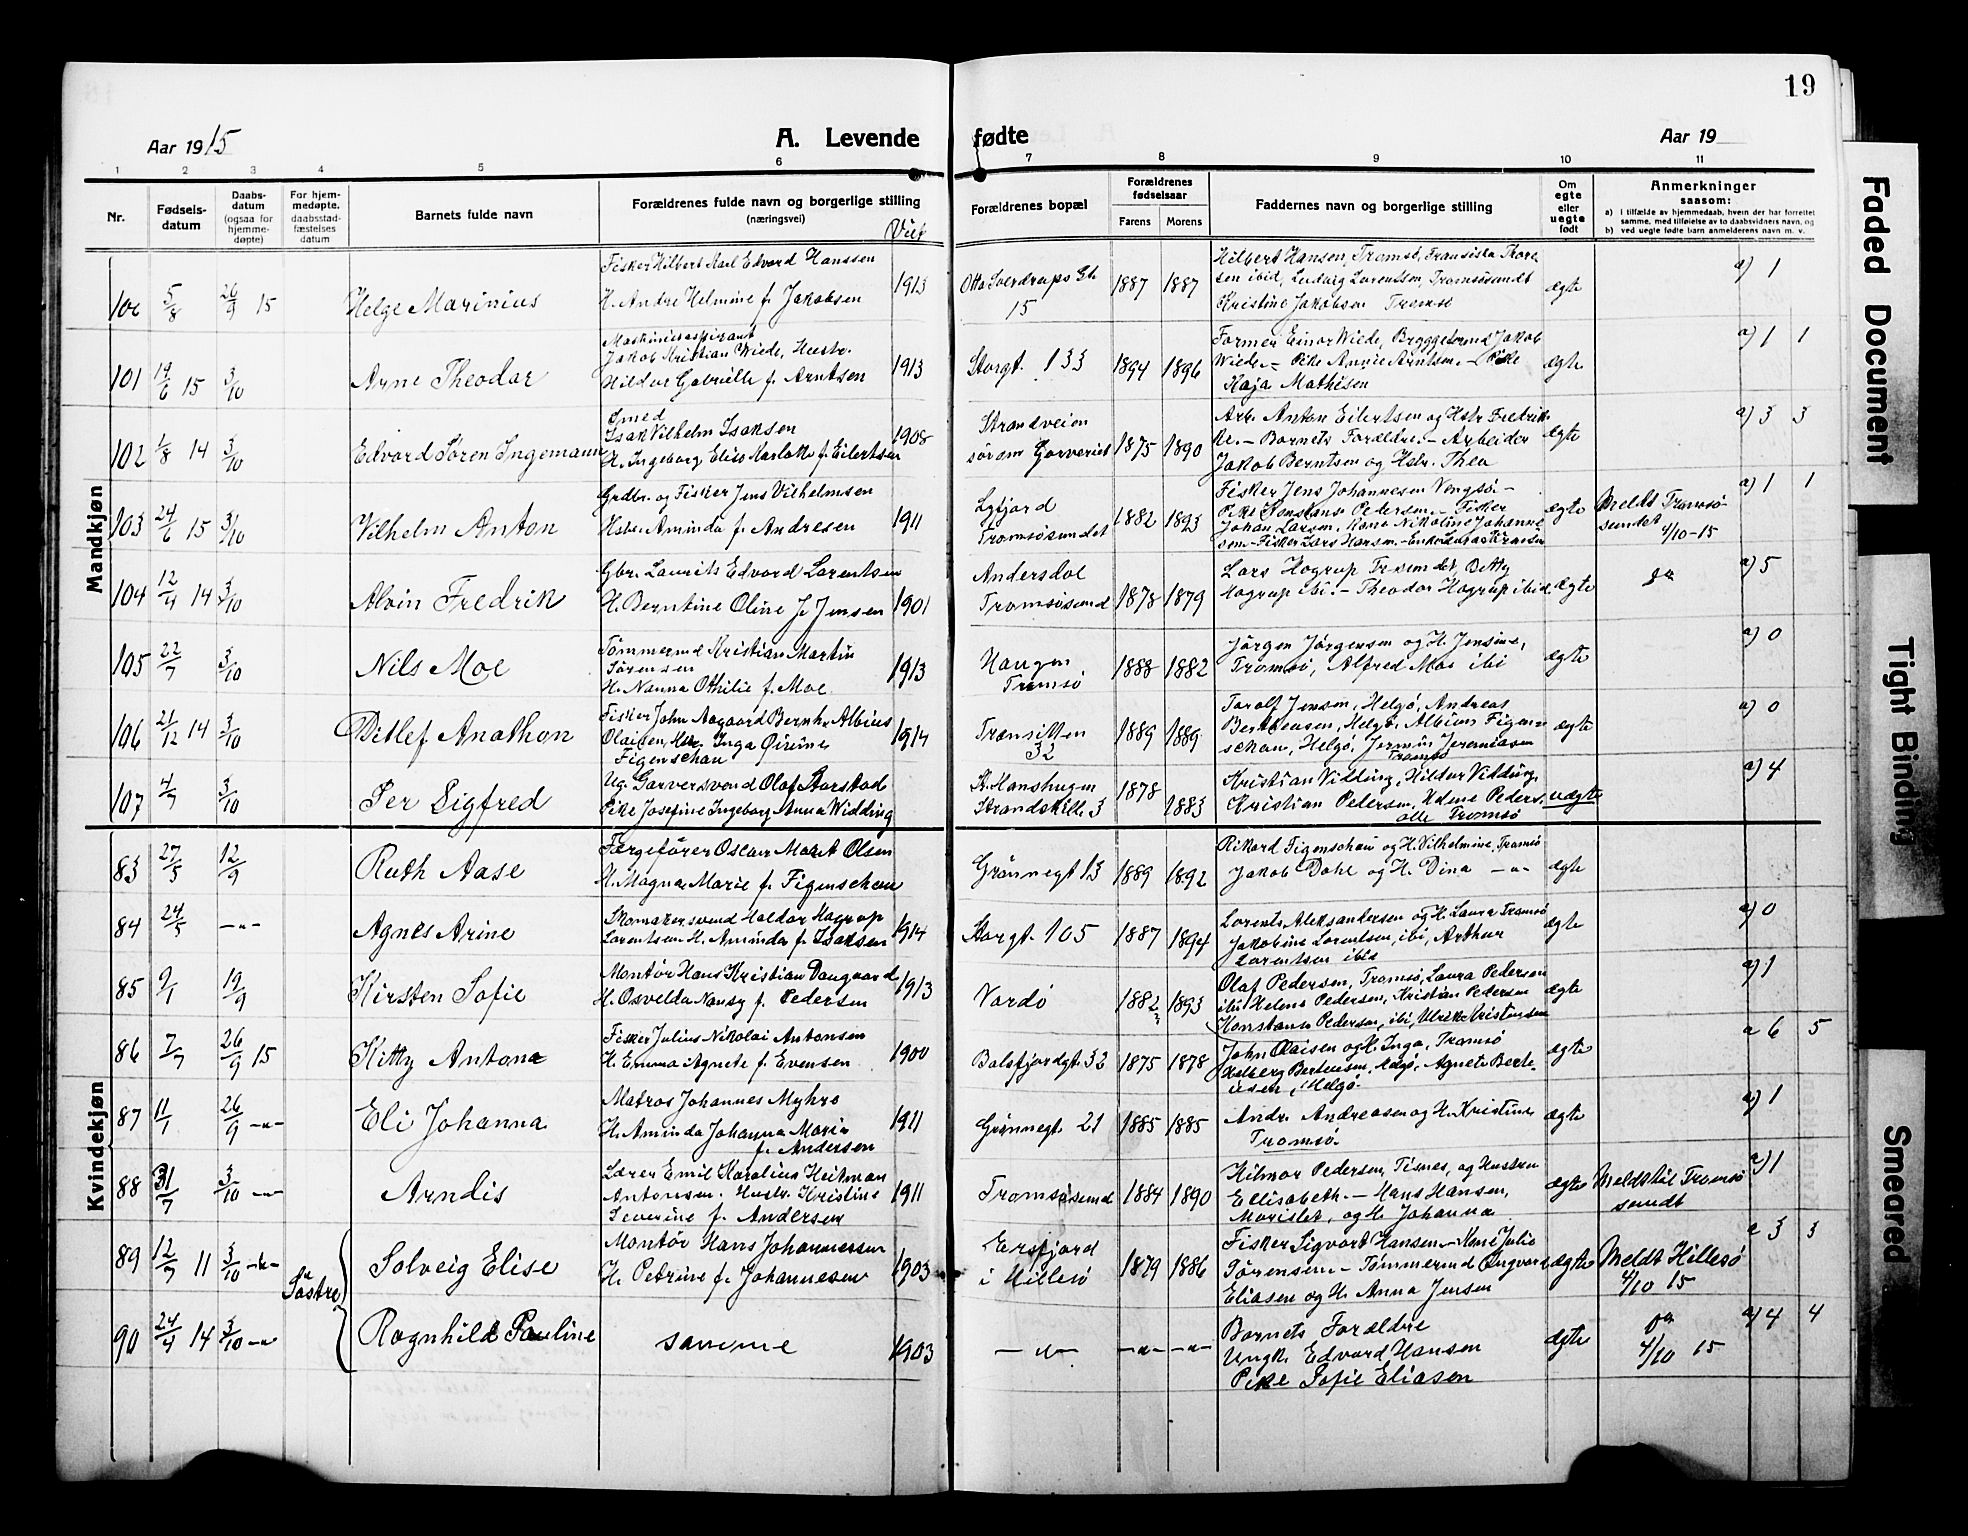 19
Aar 1915
A. Levende fødte
Aar 19
1 2 3 4 5 6 7 8 9 10 11
Nr.
Fødsels-
datum
Daabs-
datum
(ogsaa for
hjemme-
døpte)
For hjem-
medøpte,
daabsstad-
fæstelses
datum
Barnets fulde navn
Forældrenes fulde navn og borgerlige stilling
(næringsvei)
Viet
Forældrenes bopæl
Forældrenes
fødselsaar
Farens Morens
Faddernes navn og borgerlige stilling
Om
egte
eller
uegte
født
Anmerkninger
saasom:
a) i tilfælde av hjemmedaab, hvem der har forrettet
samme, med tilføielse av to daabsvidners navn, og
b) ved uegte født barn anmelderens navn m. v.
Mandkjøn
5/8 26/9 15 Helge Marinius
Fisker Hilbert Karl Edvard Hanssen
H. Andre Helmine f. Jakobsen
1913
Otto Sverdrups Gt.
15
1887 1887
Hilbert Hansen, Tromsø, Fransiska Thore
sen ibid, Ludvig Lorentsen, Tromsøsundt
Kristine Jakobsen Tromsø
ægte
a) 1
101 19/6 15 3/10 Arne Theodor
Maskinistaspirant
Jakob Kristian Wiede, Hustr.
Hildur Gabrielle f. Arntsen
1913
Storgt. 133
1894 1896
Former Einar Wiede, Bryggeformd Jakob
Wiede. - Pike Annie Arntsen. - Pike
Kaja Mathisen
ægte
a) 1 1
102 1/8 14 3/10 Edvard Søren Ingemann
Smed
Isak Vilhelm Isaksen
H. Ingeborg Elise Karlotte f. Eilertsen
1908
Strandveien
sør om Garveriet
1875 1890
Arb. Anton Eilertsen og Hstr Fredrik-
ke. - Barnets Forældre. - Arbeider
Jakob Berntsen og Hstr. Thea
ægte
a) 3 3
103 24/6 15 3/10 Vilhelm Anton
Grdbr. og Fisker Jens Vilhelmsen
Hstr. Aminda f. Andresen
1911
Lyfjord
Tromsøsundet
1882 1893
Fisker Jens Johannesen Vengsø. -
Pike Konstanse Pedersen. - Fisker
Johan Larsen, Kone Nikoline Johanne
sen - Fisker Lars Hansen. -
ægte
Meldt Tromsø-
sundet
4/10-15
a) 1 1
104 12/4 14 3/10 Alvin Fredrik
Gbr. Laurits Edvard Larentsen
H. Berntine Oline f. Jensen
1901
Andersdal
Tromsøsund
1878 1879
Lars Hagrup Tromsdt, Betty
Hagrup ibi. - Theodor Hagrup ibid.
ægte
a) 5
105 22/7 3/10 Nils Moe
Tømmermd Kristian Martin
Sørensen
H. Nanna Othilie f. Moe
1913
Haugen
Tromsø
1888 1882
Jørgen Jørgensen og H. Jensine,
Tromsø, Alfred Moe ibi
ægte
a) 0
106 21/12 14 3/10 Ditlef Anathon
Fisker John Aagaard Bernh. Albius
Olaisen, Hstr. Inga Qirine
Figenschau
1914
32
1889 1889
Toralf Jensen, Helgø, Andreas
Bertheusen, Helgø, Albion Figen-
schau, Helgø, Jermin Jeremiasen
Tromsø
ægte
a) 0
107 4/7 3/10 Per Sigfred
Ug. Garversvend Olaf Storstad
Pike Josefine Ingeborg Anna Widding
St. Hanshugen
Strandskille 3
1878 1883
Kristian Vidding, Hildur Vidding,
Kristian Petersen, Peders.
alle Tromsø
uægte
a) 4
Kvindekjøn
83 27/5 12/9 Ruth Aase
Færgefører Oscar Olsen
H. Magna Marie f. Figenschau
Grønnegt 13
1889 1892
Rikard Figenschau og H. Vilhelmine, Tromsø
Jakob Dahl og H. Dina -"-
ægte
84 24/5 -"- Agnes Arine
Skomakersvend Haldor Hagrup
Lorentsen H. Aminda f. Isaksen
1914
Storgt. 105
1887 1894
Lorents Aleksandersen og H. Laura Tromsø
Jakobine Lorentsen, ibi, Arthur
Lorentsen ibid
ægte
a) 0
85 9/1 19/9 Kirsten Sofie
Montør Hans Kristian Daugaard
H. Osvelda Nansy f. Pedersen
1913
Vardø
1882 1893
Olaf Pedersen, Tromsø, Laura Pedersen
ibi Helene Pedersen, Kristian Pedersen
Konstanse Pedersen, ibi, Ulrik Kristensen
ægte
a) 1
86 7/7 26/9 15 Kitty Antona
Fisker Julius Nikolai Antonsen
H. Emma Agnete f. Evensen
1900
Balsfjordgt. 32
1875 1878
John Olaisen og H. Inga, Tromsø
Bertheusen, Helgø, Agnete Berte-
usen, Helgø.
ægte
a 6 5
87 11/1 26/9 -"- Eli Johanna
Matros Johannes Myhre
H. Aminda Johanna Marie
f. Andersen
1911
Grønnegt. 21
1885 1885
Andr. Andreasen og H. Kristine
Tromsø.
ægte
a) 1
88 31/7 3/10 -"- Arndis
Lærer Emil Karolius Heitman
Antonsen. Hustr. Kristine
Severine f. Andersen
1911
Tromsøsund
1884 1890
Hilmar Pedersen, Tisnes, og Hustru
Ellisabeth. - Hans Hansen,
og H. Johanna
ægte
Meldt til Tromsø
sundt
a) 1
89 12/7 11 3/10 -"- Solveig Elise
Søstre
Montør Hans Johannessen
H. Petrine f. Johannesen
1903
Ersfjord
i Hillesø
1879 1886
Fisker Sigvart Hansen - Kone Julie
Sørensen - Tømmermd Ingvard
Eliasen og H. Anna Jensen
ægte
Meldt Hillesø
4/10 15
a 3 3
90 24/4 14 3/10 -"- Ragnhild Pauline
samme
1903
-"- -"- -"-
Barnets Forældre
Ungk. Edvard Hansen
Pike Sofie Eliasen
ægte
4/10 15
a) 4 4
Faded Document
Tight Binding
Smeared